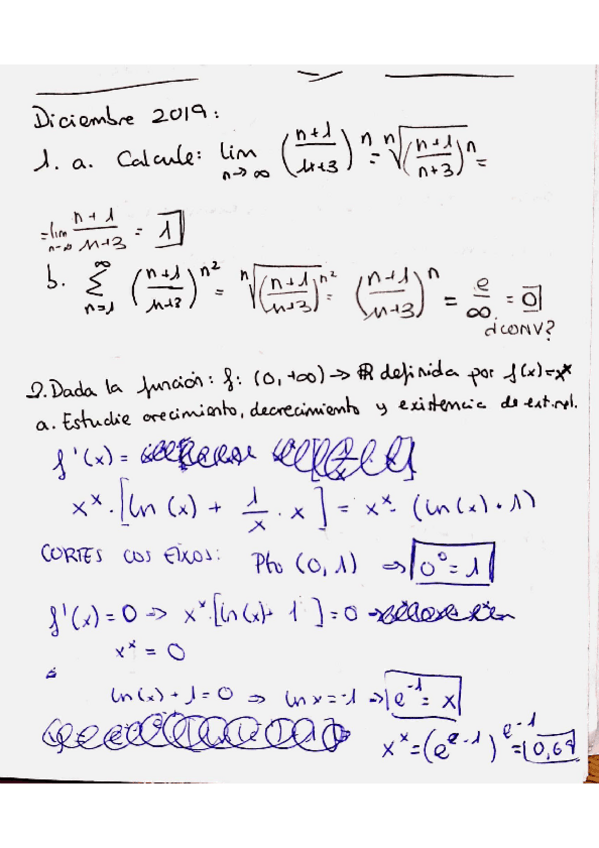 Diciembre 2019:
1. a. Calcule: lim n→∞ ((n+1)/(n+3))^n = ⁿ√((n+1)/(n+3))^n =
= lim n→∞ (n+1)/(n+3) = 1
b. ∑ n=1 ∞ ((n+1)/(n+3))^n² = ⁿ√((n+1)/(n+3))^n² = ((n+1)/(n+3))^n = e/∞ = 0
¿CONV?
2. Dada la función: f: (0, +∞) → ℝ definida por f(x) = x^x
a. Estudie crecimiento, decrecimiento y existencia de ext. rel.
f'(x) =
x^x · [ln(x) + 1/x · x] = x^x · (ln(x) + 1)
CORTES COS EIXOS: Pto (0, 1) ⇒ 0^0 = 1
f'(x) = 0 → x^x · [ln(x) + 1] = 0 →
x^x = 0
ln(x) + 1 = 0 ⇒ ln x = -1 → e^-1 = x
x^x = (e^-1)^e^-1 = 0,69